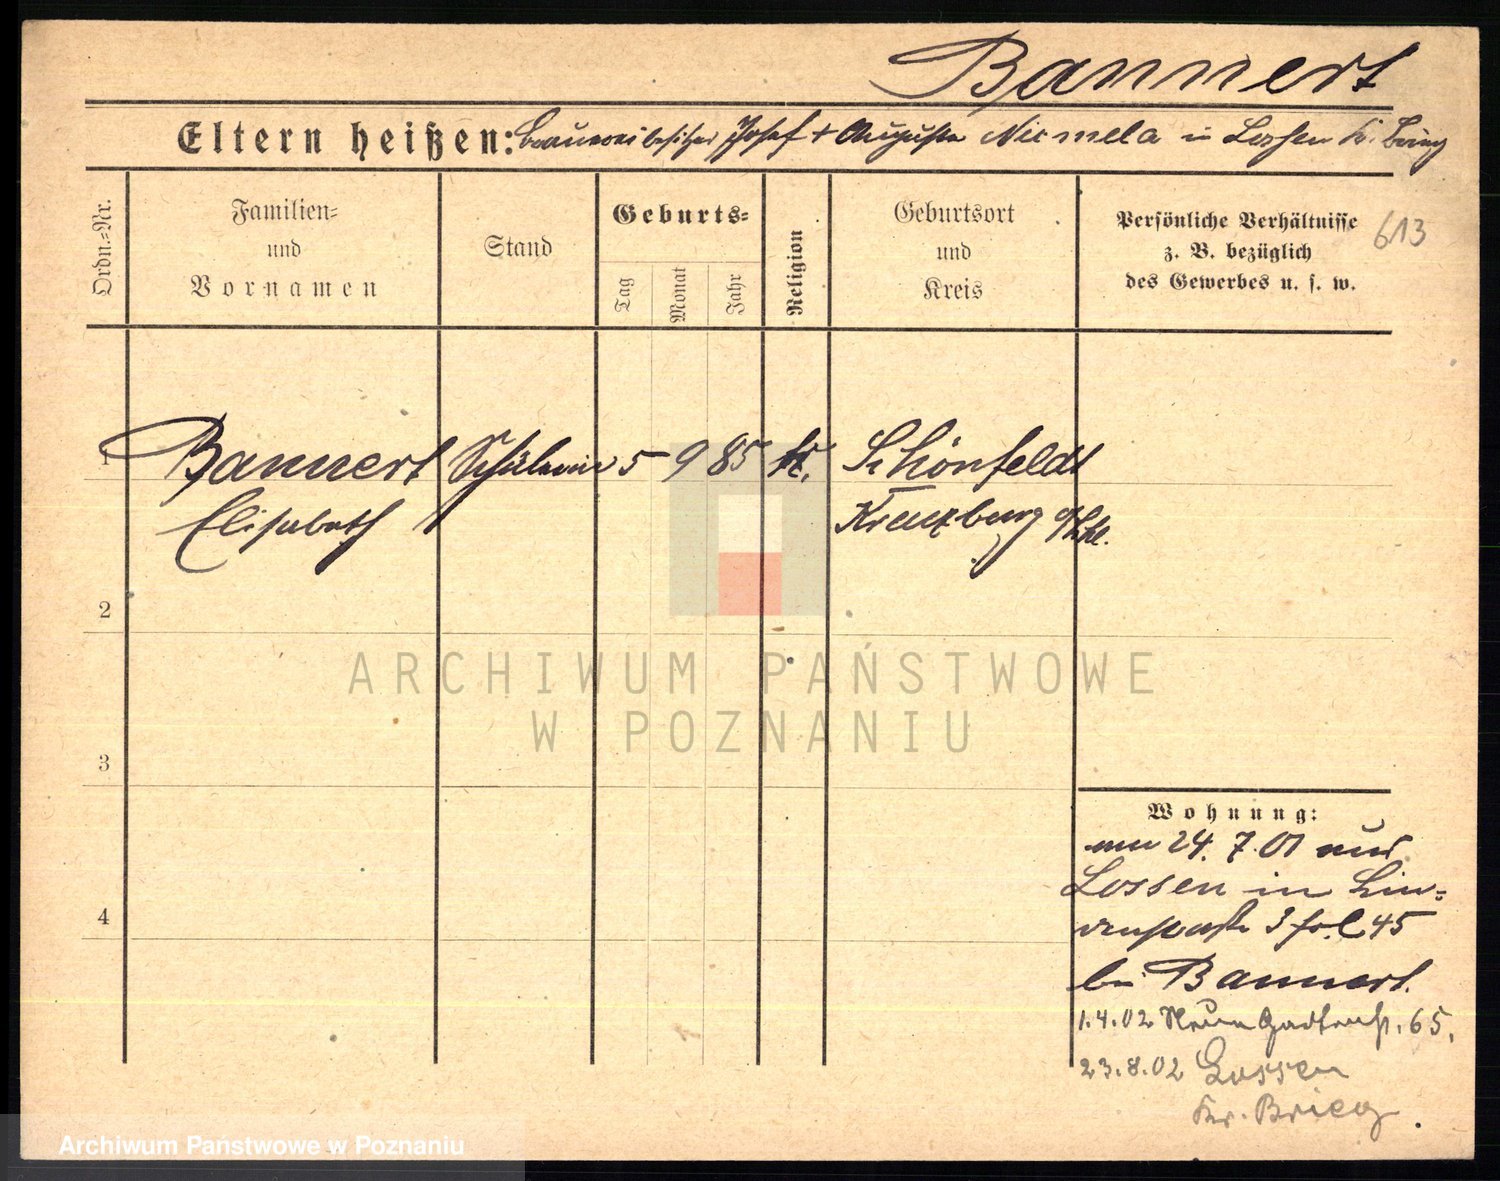 Bannert
Eltern heißen: Brauereibesitzer Josef + Auguste Niemela in Lossen Kr. Brieg
Ordn.=Nr.
Familien=
und
Vornamen
Stand
Geburts=
Tag
Monat
Jahr
Religion
Geburtsort
und
Kreis
Persönliche Verhältnisse
z. B. bezüglich
des Gewerbes u. s. w.
613
1 Bannert Schülerin 5 9 85 k. Schönfeldt
Elisabeth Kreuzburg
2
3
4
Wohnung:
24. 7. 01 aus
Lossen in Lin=
denstraße 3 45
bei Bannert.
1.4.02 Neue Gartenst. 65.
23.8.02 Lossen
Kr. Brieg.
ARCHIWUM PAŃSTWOWE
W POZNANIU
Archiwum Państwowe w Poznaniu